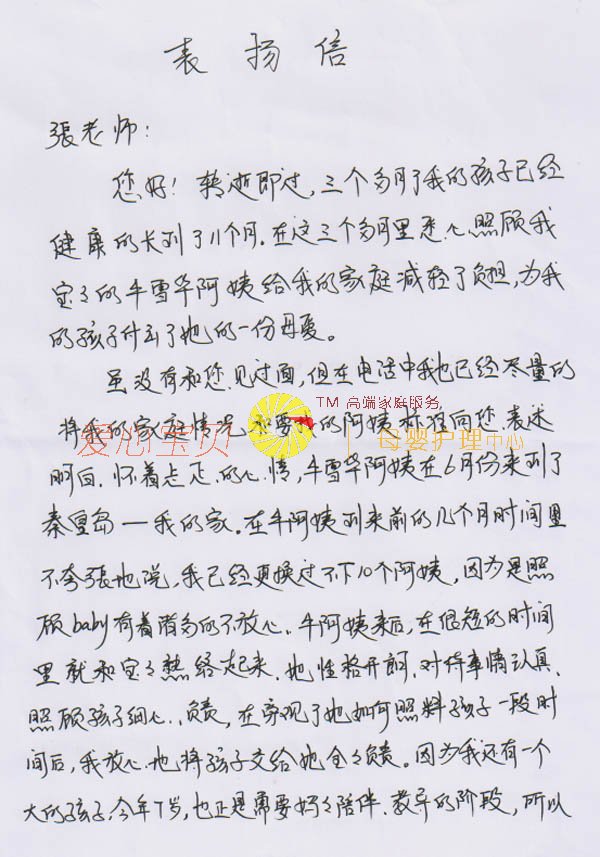 表扬信
張老师：
您好！转逝即过，三个多月了我的孩子已经
健康的长到了11个月.在这三个多月里悉心照顾我
宝々的牛雪华阿姨给我的家庭减轻了负担,为我
的孩子付出了她的一份母爱。
虽没有和您见过面,但在电话中我也已经尽量的
TM 高端家庭服务
将我的家庭情况 要我的阿姨标准向您表述
爱心宝贝 母婴护理中心
明白.怀着忐忑的心情,牛雪华阿姨在6月份来到了
秦皇岛—我的家.在牛阿姨到来前的几个月时间里
不夸張地说,我已经更换过不下10个阿姨,因为是照
顾baby有着诸多的不放心.牛阿姨来后,在很短的时间
里就和宝々熟络起来.她性格开朗.对待事情认真.
照顾孩子细心、负责,在旁观了她如何照料孩子一段时
间后,我放心地将孩子交给她全々负责。因为我还有一个
大的孩子.今年7岁,也正是需要妈々陪伴.教导的阶段,所以